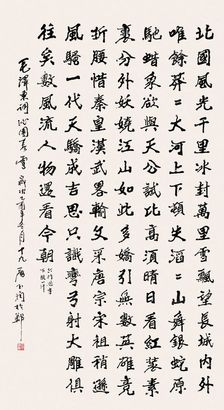 北國風光千里冰封萬里雪飄望長城内外
唯餘莽=大河上下頓失滔=山舞銀蛇原
馳蠟象欲與天公試比高須晴日看紅裝素
裹分外妖嬈江山如此多嬌引無數英雄競
折腰惜秦皇漢武略輸文采唐宗宋祖稍遜
風騷一代天驕成吉思只識彎弓射大雕俱
往矣數風流人物還看今朝
毛澤東詞沁園春雪 歲次乙酉年冬月十九